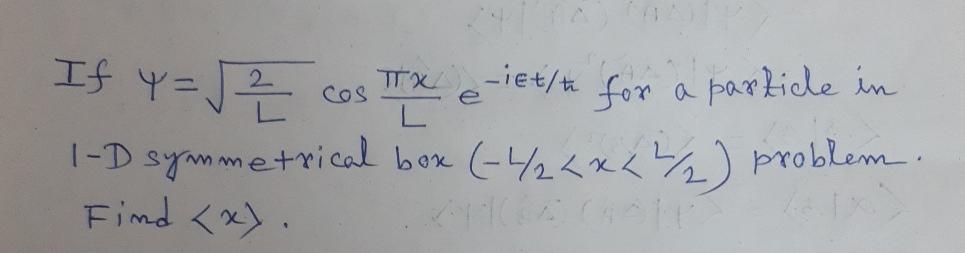 If ψ = √(2/L) cos πx/L e^(-iEt/ħ) for a particle in
1-D symmetrical box (-L/2 < x < L/2) problem.
Find <x>.